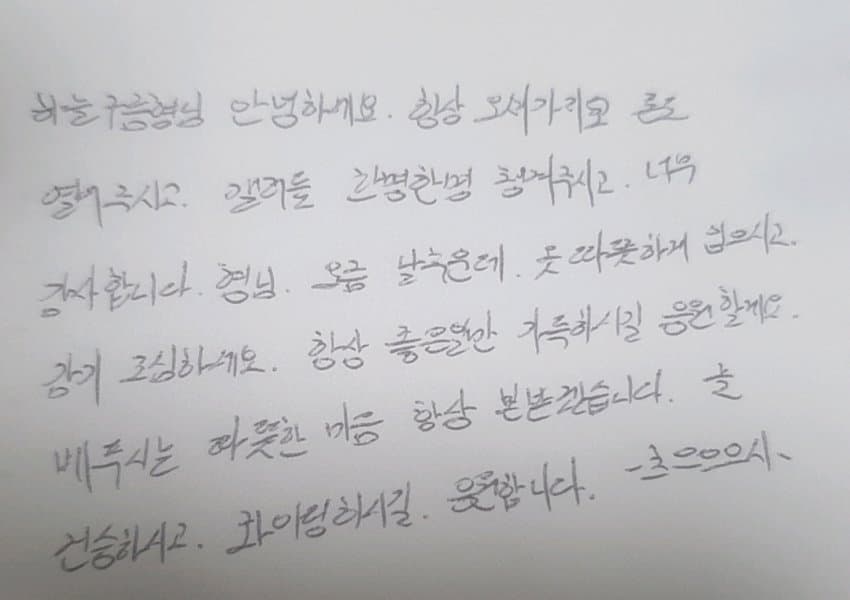 하늘구름형님 안녕하세요. 항상 오셔가지고 론도
열어주시고. 갤러들 한명한명 챙겨주시고. 너무
감사합니다. 형님. 요즘 날추운데. 옷 따뜻하게 입으시고.
감기 조심하세요. 항상 좋은일만 가득하시길 응원할게요.
베푸시는 따뜻한 마음 항상 본받겠습니다. 늘
건승하시고. 화이팅하시길. 응원합니다. -츠으으으시-